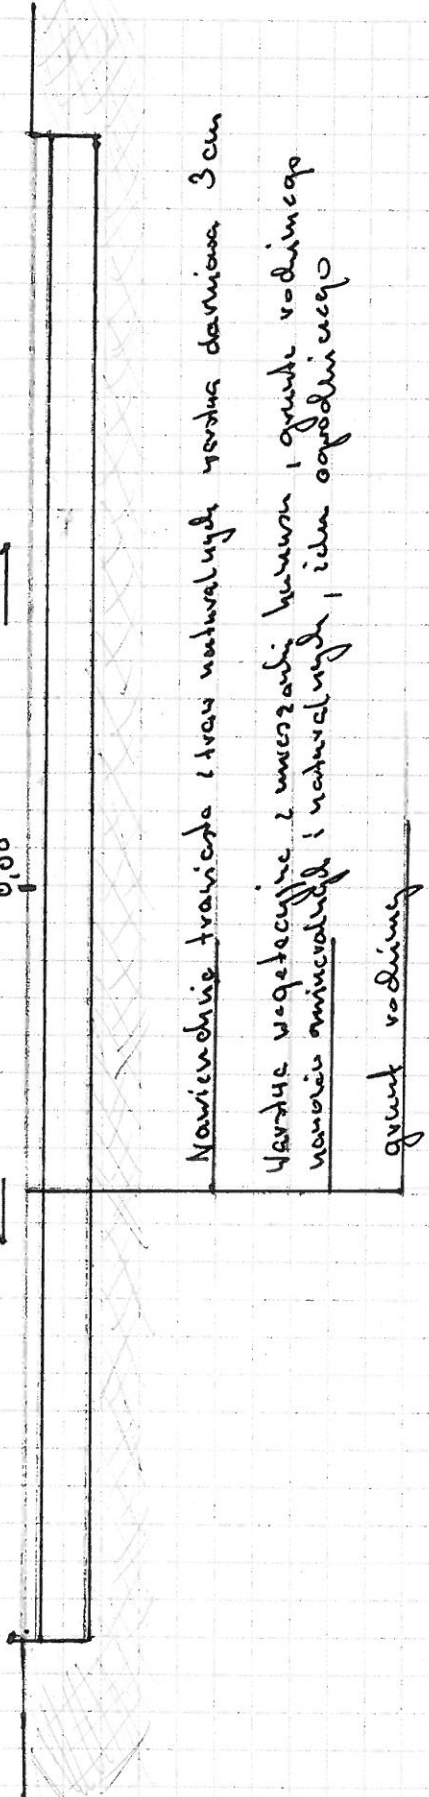 0,00
Nawierzchnia trawiasta z traw naturalnych warstwa darniowa 3 cm
Warstwa wegetacyjna z mieszanki humusu, gruntu rodzimego
nawozów mineralnych i naturalnych, iłu ogrodniczego
grunt rodzimy